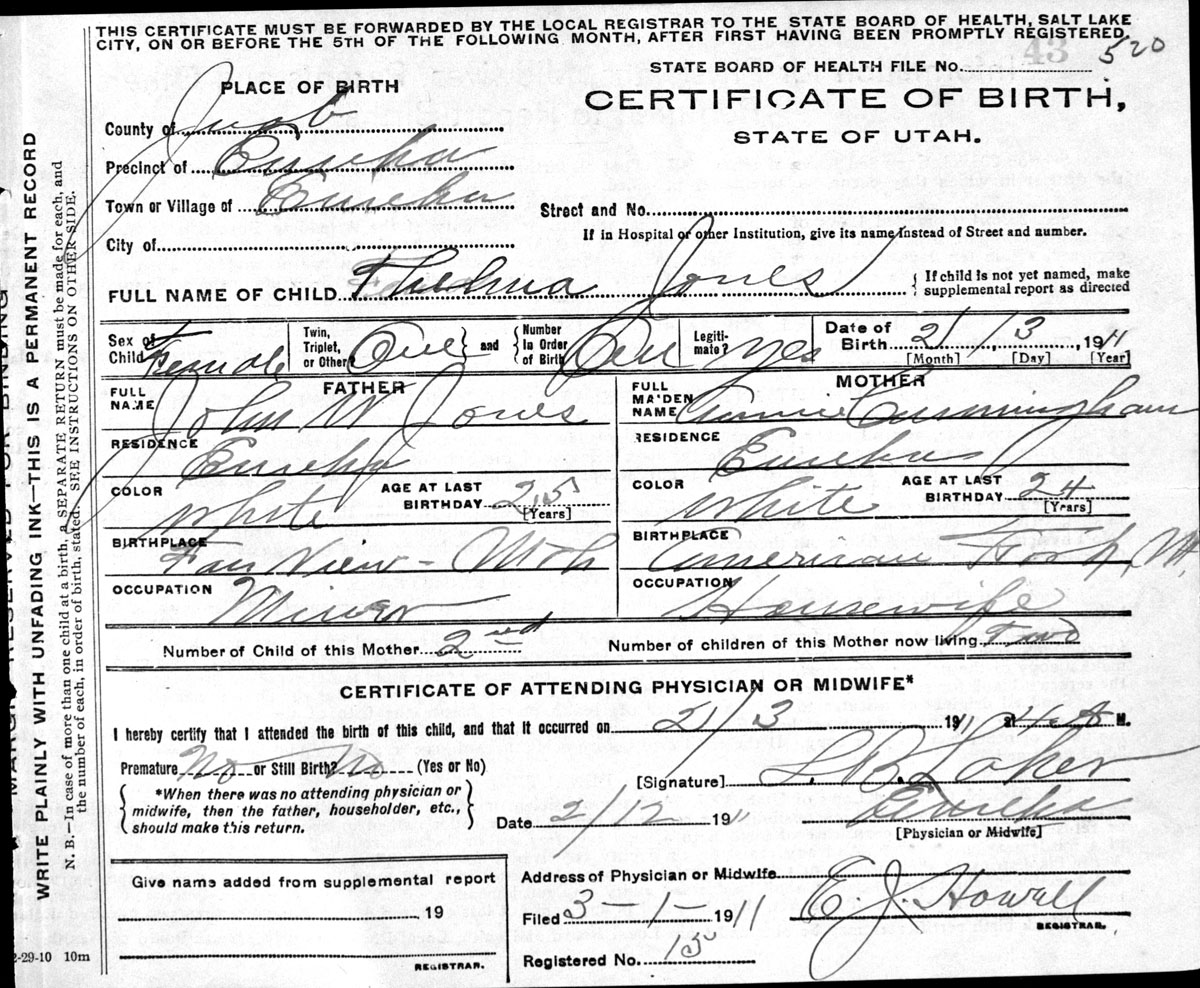 THIS CERTIFICATE MUST BE FORWARDED BY THE LOCAL REGISTRAR TO THE STATE BOARD OF HEALTH, SALT LAKE
CITY, ON OR BEFORE THE 5TH OF THE FOLLOWING MONTH, AFTER FIRST HAVING BEEN PROMPTLY REGISTERED
43
STATE BOARD OF HEALTH FILE No. 520
PLACE OF BIRTH
CERTIFICATE OF BIRTH,
STATE OF UTAH.
County of Juab
Precinct of Eureka
Town or Village of Eureka
Street and No.
If in Hospital or other Institution, give its name instead of Street and number.
City of
FULL NAME OF CHILD Thelma Jones { If child is not yet named, make supplemental report as directed
Sex of Child Female Twin, Triplet, or Other? One } and { Number in Order of Birth One Legiti- mate? Yes Date of Birth 2/ 3, 1911
[Month] [Day] [Year]
FATHER
MOTHER
FULL NAME John W Jones
FULL MAIDEN NAME Annie Cunningham
RESIDENCE Eureka
RESIDENCE Eureka
COLOR White AGE AT LAST BIRTHDAY 25 [Years]
COLOR White AGE AT LAST BIRTHDAY 24 [Years]
BIRTHPLACE Fair View - Utah
BIRTHPLACE American Fork, Ut.
OCCUPATION Miner
OCCUPATION Housewife
Number of Child of this Mother 2nd
Number of children of this Mother now living Two
CERTIFICATE OF ATTENDING PHYSICIAN OR MIDWIFE*
I hereby certify that I attended the birth of this child, and that it occurred on 2/3 1911 at M.
Premature No or Still Birth? No (Yes or No)
[Signature]
{ *When there was no attending physician or midwife, then the father, householder, etc., should make this return. }
Date 2/12 1911
Eureka
[Physician or Midwife]
Give name added from supplemental report
, 19
REGISTRAR.
Address of Physician or Midwife
Filed 3-1-1911 E. J. Howell
REGISTRAR.
Registered No. 15
2-29-10 10m
MARGIN RESERVED FOR BINDING
WRITE PLAINLY WITH UNFADING INK—THIS IS A PERMANENT RECORD
N. B.—In case of more than one child at a birth, a SEPARATE RETURN must be made for each, and
the number of each, in order of birth, stated. SEE INSTRUCTIONS ON OTHER SIDE.